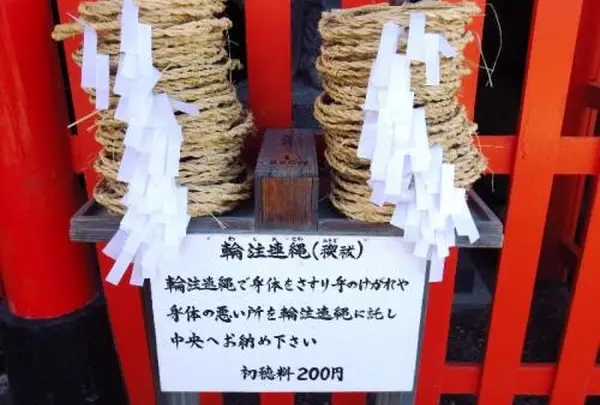 輪注連縄(禊祓)
輪注連縄で身体をさすり身のけがれや
身体の悪い所を輪注連縄に託し
中央へお納め下さい
初穂料200円